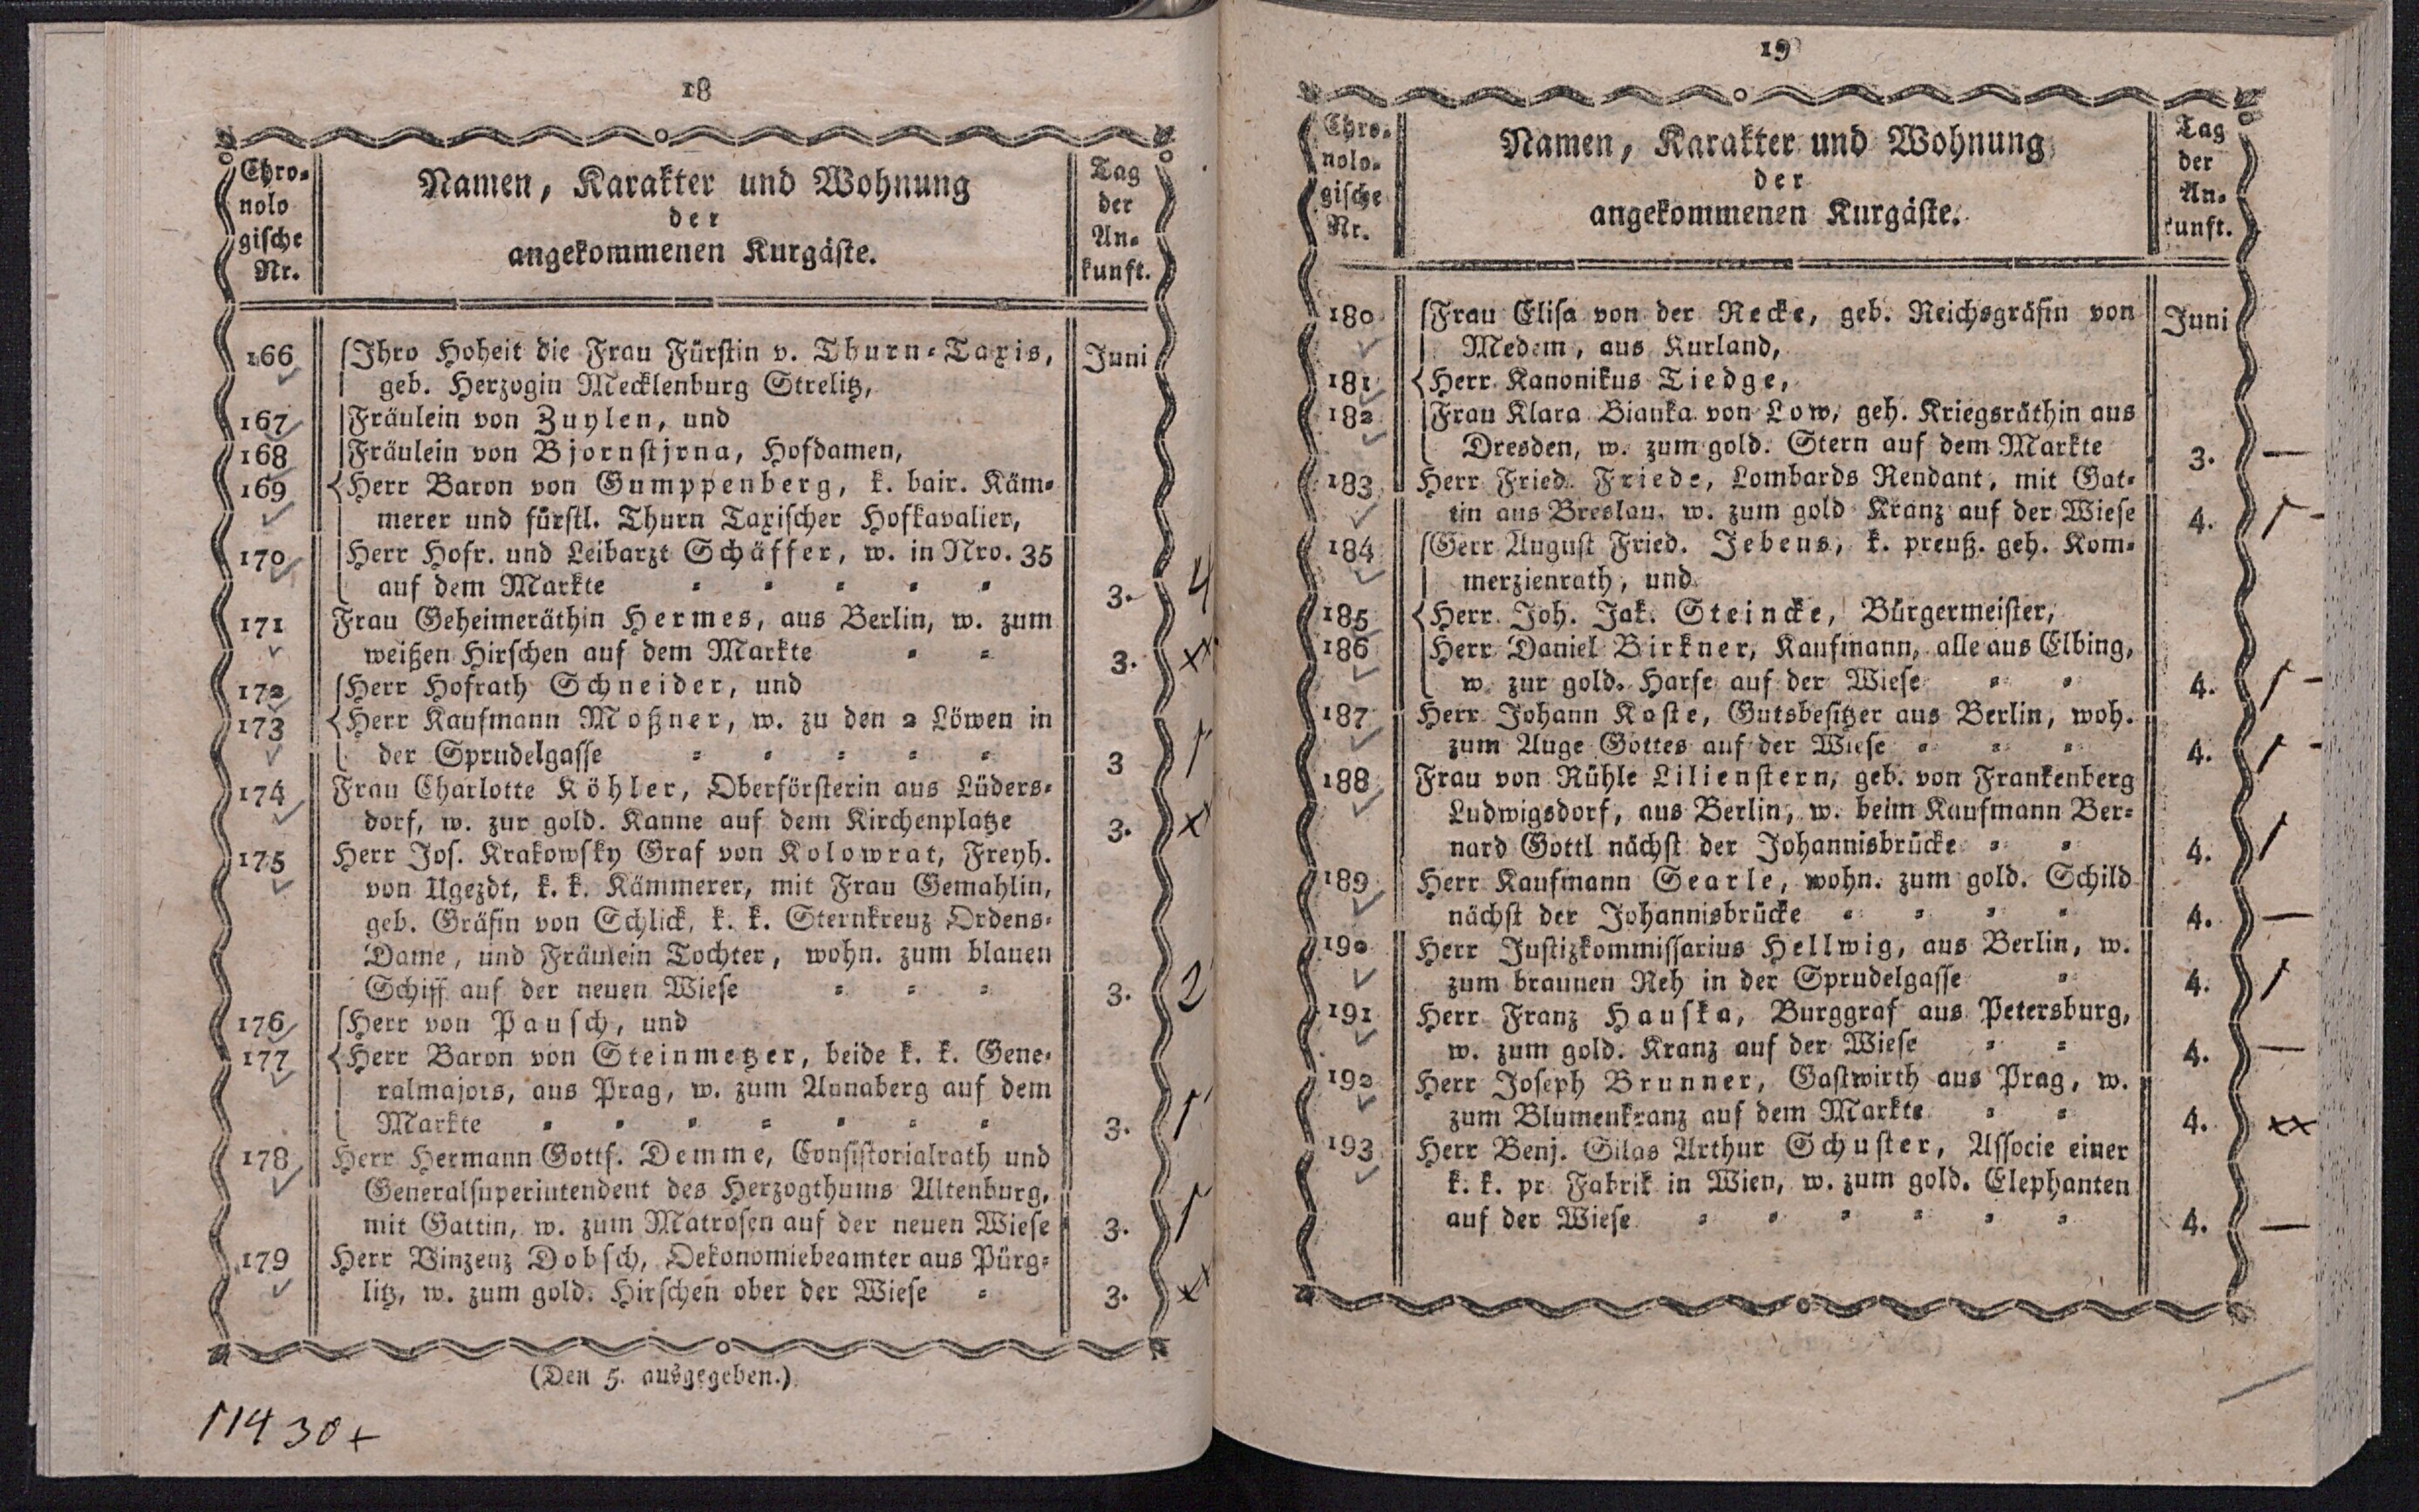 18
Chro-
nolo
gische
Nr.
Namen, Karakter und Wohnung
der
angekommenen Kurgäste.
Tag
der
An-
kunft.
166 Ihro Hoheit die Frau Fürstin v. Thurn-Taxis, Juni
geb. Herzogin Mecklenburg Strelitz,
167 Fräulein von Zuylen, und
168 Fräulein von Bjornstjrna, Hofdamen,
169 Herr Baron von Gumppenberg, k. bair. Käm-
merer und fürstl. Thurn Taxischer Hofkavalier,
170 Herr Hofr. und Leibarzt Schäffer, w. in Nro. 35
auf dem Markte 3. 4
171 Frau Geheimeräthin Hermes, aus Berlin, w. zum
weißen Hirschen auf dem Markte 3. xx
172 Herr Hofrath Schneider, und
173 Herr Kaufmann Moßner, w. zu den 2 Löwen in
der Sprudelgasse 3 1
174 Frau Charlotte Köhler, Oberförsterin aus Lüders-
dorf, w. zur gold. Kanne auf dem Kirchenplatze 3. xx
175 Herr Jos. Krakowsky Graf von Kolowrat, Freyh.
von Ugezdt, k. k. Kämmerer, mit Frau Gemahlin,
geb. Gräfin von Schlick, k. k. Sternkreuz Ordens-
Dame, und Fräulein Tochter, wohn. zum blauen
Schiff auf der neuen Wiese 3. 2
176 Herr von Pausch, und
177 Herr Baron von Steinmetzer, beide k. k. Gene-
ralmajors, aus Prag, w. zum Annaberg auf dem
Markte 3. 1
178 Herr Hermann Gottf. Demme, Consistorialrath und
Generalsuperintendent des Herzogthums Altenburg,
mit Gattin, w. zum Matrosen auf der neuen Wiese 3. 1
179 Herr Vinzenz Dobsch, Oekonomiebeamter aus Pürg-
litz, w. zum gold. Hirschen ober der Wiese 3. xx
(Den 5. ausgegeben.)
11430+
19
Chro-
nolo-
gische
Nr.
Namen, Karakter und Wohnung
der
angekommenen Kurgäste.
Tag
der
An-
kunft.
180 Frau Elisa von der Recke, geb. Reichsgräfin von Juni
Medem, aus Kurland,
181 Herr Kanonikus Tiedge,
182 Frau Klara Bianka von Low, geh. Kriegsräthin aus
Dresden, w. zum gold. Stern auf dem Markte 3. —
183 Herr Fried. Friede, Lombards Rendant, mit Gat-
tin aus Breslau, w. zum gold Kranz auf der Wiese 4. 1 -
184 Herr August Fried. Jebens, k. preuß. geh. Kom-
merzienrath, und
185 Herr Joh. Jak. Steincke, Bürgermeister,
186 Herr Daniel Birkner, Kaufmann, alle aus Elbing,
w. zur gold. Harfe auf der Wiese 4. 1 -
187 Herr Johann Koste, Gutsbesitzer aus Berlin, woh.
zum Auge Gottes auf der Wiese 4. 1 -
188 Frau von Rühle Lilienstern, geb. von Frankenberg
Ludwigsdorf, aus Berlin, w. beim Kaufmann Ber-
nard Gottl nächst der Johannisbrücke 4. 1
189 Herr Kaufmann Searle, wohn. zum gold. Schild
nächst der Johannisbrücke 4. —
190 Herr Justizkommissarius Hellwig, aus Berlin, w.
zum braunen Reh in der Sprudelgasse 4. 1
191 Herr Franz Hauska, Burggraf aus Petersburg,
w. zum gold. Kranz auf der Wiese 4. —
192 Herr Joseph Brunner, Gastwirth aus Prag, w.
zum Blumenkranz auf dem Markte 4. xx
193 Herr Benj. Silas Arthur Schuster, Associe einer
k. k. pr. Fabrik in Wien, w. zum gold. Elephanten
auf der Wiese 4. —